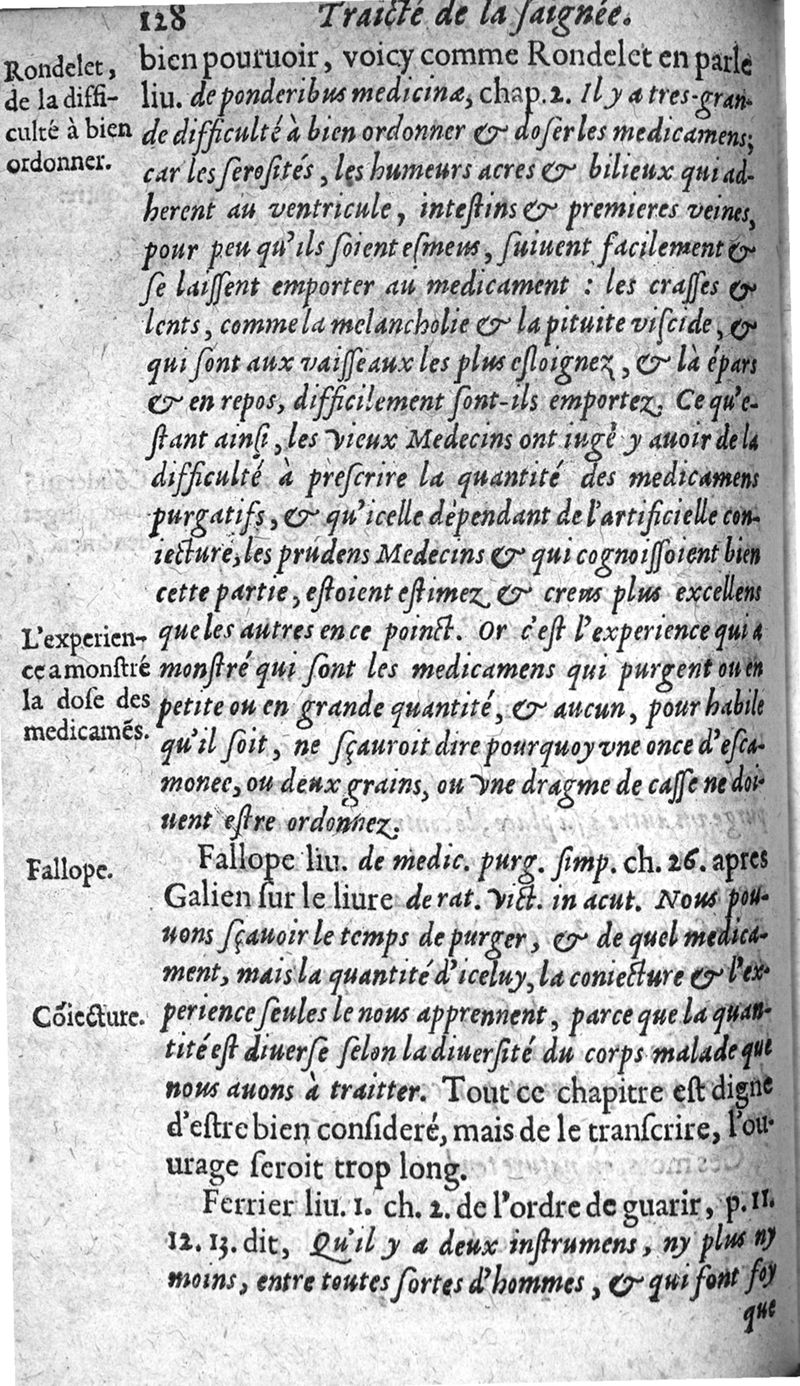 128 Traicté de la ſaignée.
Rondelet,
de la diffi-
culté à bien
ordonner.
bien pouruoir, voicy comme Rondelet en parle
liu. de ponderibus medicinæ, chap. 2. Il y a tres-gran-
de difficulté à bien ordonner & doſer les medicamens;
car les ſeroſités, les humeurs acres & bilieux qui ad-
herent au ventricule, inteſtins & premieres veines,
pour peu qu'ils ſoient eſmeus, ſuiuent facilement &
ſe laiſſent emporter au medicament : les craſſes &
lents, comme la melancholie & la pituite viſcide, &
qui ſont aux vaiſſeaux les plus eſloignez, & là épars
& en repos, difficilement ſont-ils emportez. Ce qu'e-
ſtant ainſi, les vieux Medecins ont iugé y auoir de la
difficulté à preſcrire la quantité des medicamens
purgatifs, & qu'icelle dépendant de l'artificielle con-
iecture, les prudens Medecins & qui cognoiſſoient bien
cette partie, eſtoient eſtimez & creus plus excellens
que les autres en ce poinct. Or c'eſt l'experience qui a
monſtré qui ſont les medicamens qui purgent ou en
petite ou en grande quantité, & aucun, pour habile
qu'il ſoit, ne ſçauroit dire pourquoy vne once d'eſca-
monee, ou deux grains, ou vne dragme de caſſe ne doi-
uent eſtre ordonnez.
L'experien-
ce a monſtré
la doſe des
medicamẽs.
Fallope.
Fallope liu. de medic. purg. ſimp. ch. 26. apres
Galien ſur le liure de rat. vict. in acut. Nous pou-
uons ſçauoir le temps de purger, & de quel medica-
ment, mais la quantité d'iceluy, la coniecture & l'ex-
perience ſeules le nous apprennent, parce que la quan-
tité eſt diuerſe ſelon la diuerſité du corps malade que
nous auons à traitter. Tout ce chapitre eſt digne
d'eſtre bien conſideré, mais de le tranſcrire, l'ou-
urage ſeroit trop long.
Cõiecture.
Ferrier liu. 1. ch. 2. de l'ordre de guarir, p. 11.
12. 13. dit, Qu'il y a deux inſtrumens, ny plus ny
moins, entre toutes ſortes d'hommes, & qui ſont foy
que